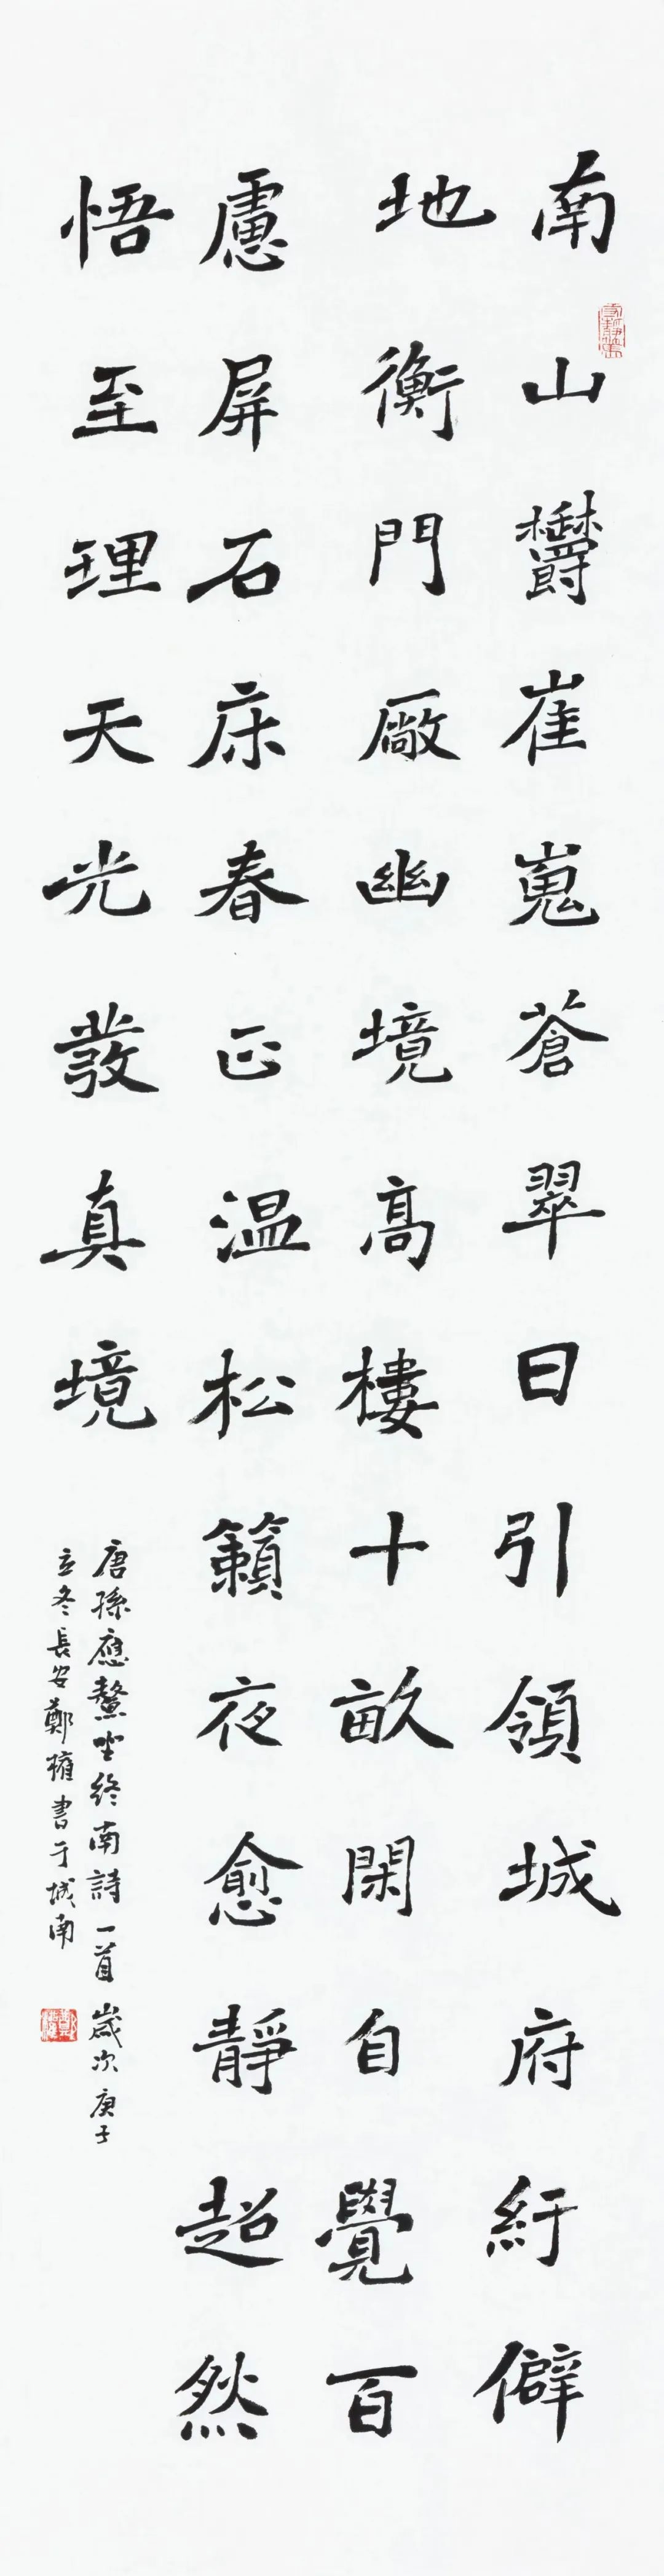 南山欝崔嵬蒼翠日引領城府紆僻
地衡門厰幽境高樓十畝閑自覺百
慮屏石床春正温松籟夜愈靜超然
悟至理天光發真境
唐孫應鰲坐終南詩一首歲次庚子
立冬長安鄭擁書于城南